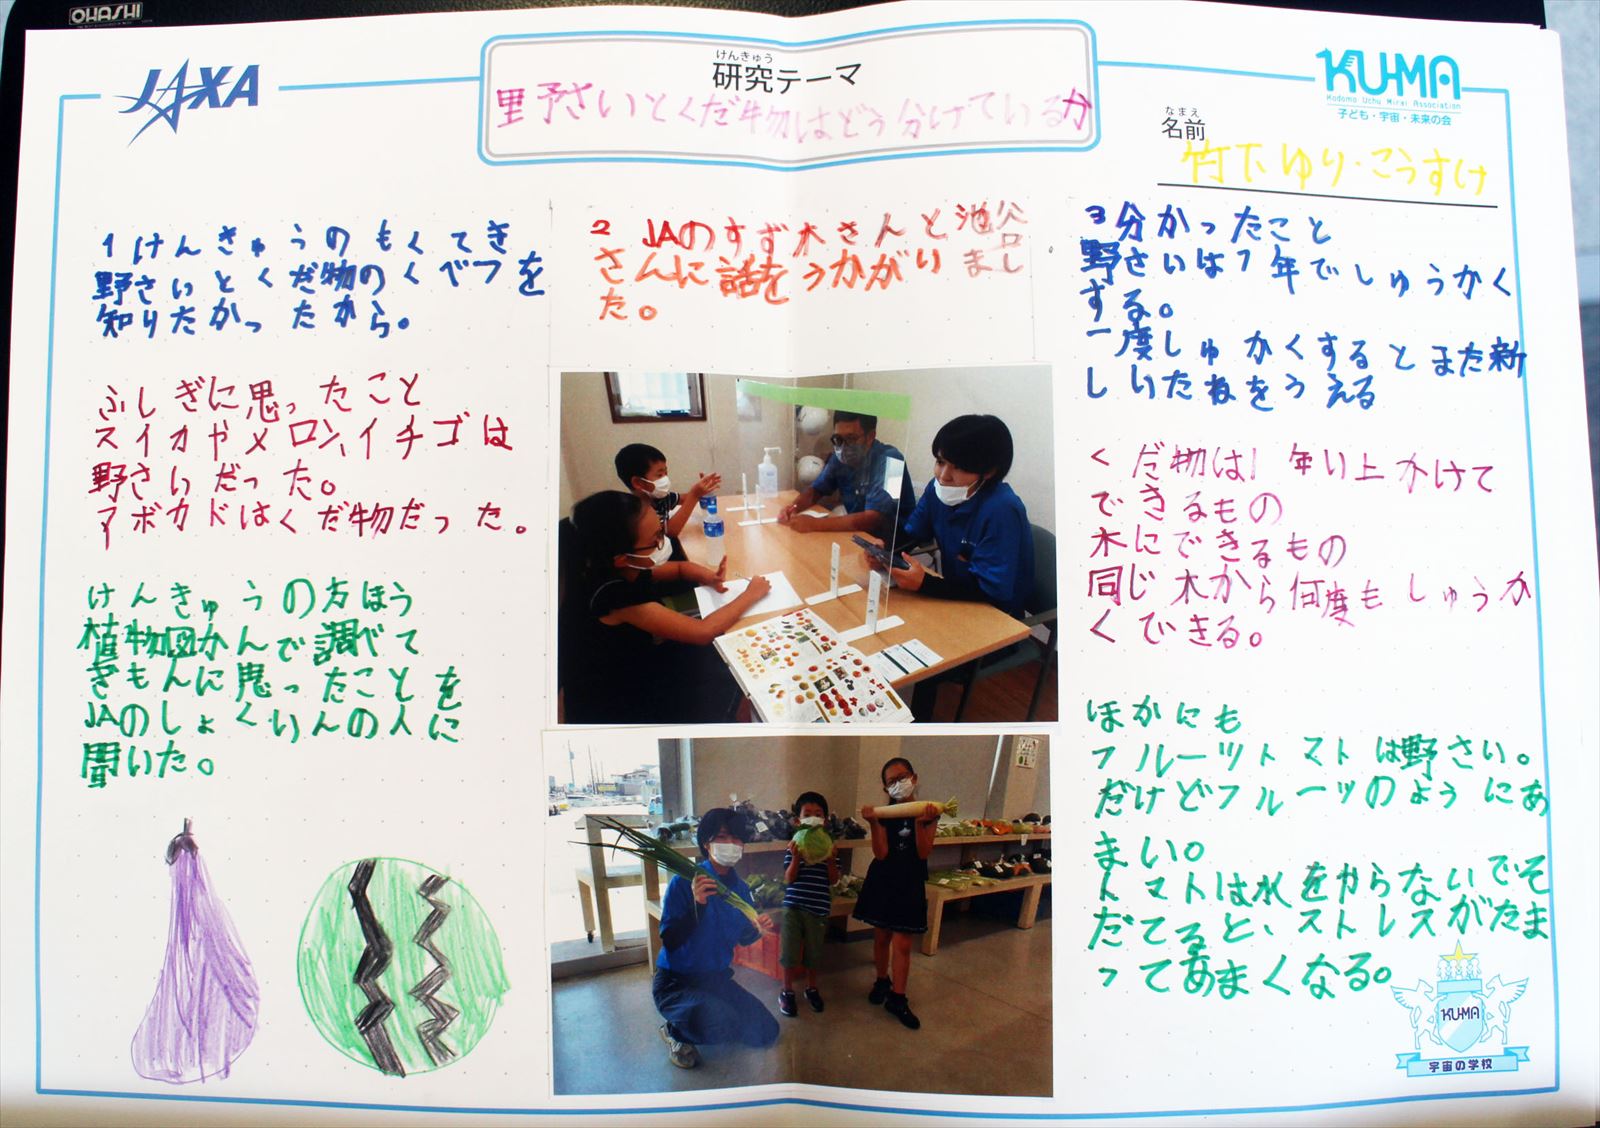 OHASHI
JAXA
けんきゅう
研究テーマ
野さいとくだ物はどう分けているか
KU-MA
Kodomo Uchu Mirai Association
子ども・宇宙・未来の会
なまえ
名前
竹下ゆり・こうすけ
1 けんきゅうのもくてき
野さいとくだ物のくべつを
知りたかったから。
ふしぎに思ったこと
スイカやメロン、イチゴは
野さいだった。
アボカドはくだ物だった。
けんきゅうの方ほう
植物図かんで調べて
ぎもんに思ったことを
JAのしょくいんの人に
聞いた。
2 JAのすず木さんと池谷
さんに話をうかがりまし
た。
3 分かったこと
野さいは1年でしゅうかく
する。
一度しゅかくするとまた新
しいたねをうえる
くだ物は1年い上かけて
できるもの
木にできるもの
同じ木から何度もしゅうか
くできる。
ほかにも
フルーツトマトは野さい。
だけどフルーツのようにあ
まい。
トマトは水をやらないでそ
だてると、ストレスがたま
ってあまくなる。
KU-MA
宇宙の学校